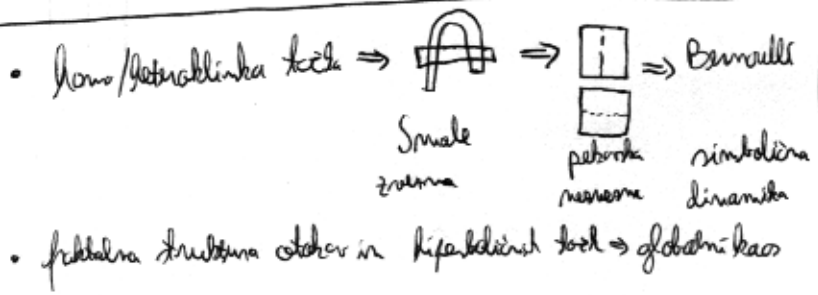 • homo/heteroklinka točka ⇒ ⇒ ⇒ Bernoulli
Smale pekovska simbolična
zvezna nezvezna dinamika
• fraktalna struktura otokov in hiperboličnih točk ⇒ globalni kaos